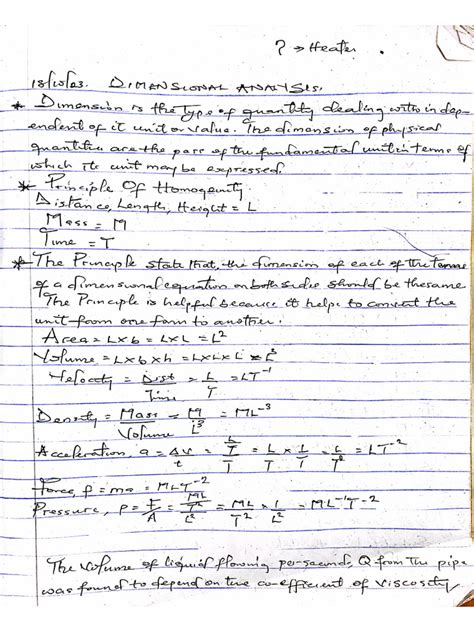 ? → Heater .
18/10/23. DIMENSIONAL ANALYSIS.
* Dimension is the type of quantity dealing with indep-
endent of it unit or value. The dimension of physical
quantities are the pars of the fundamental unit in terms of
which its unit may be expressed
* Principle Of Homogenity
Distance, Length, Height = L
Mass = M
Time = T
* The Principle state that, the dimension of each of the terms
of a dimensional equation on both sides should be the same
The Principle is helpful because it helps to convert the
unit from one form to another.
Area = L×b = L×L = L²
Volume = L×b×h = L×L×L = L³
Velocity = Dist/Time = L/T = LT⁻¹
Density = Mass/Volume = M/L³ = ML⁻³
Acceleration, a = ΔV/t = L/T/T = L/T × 1/T = L/T² = LT⁻²
Force, f = ma = MLT⁻²
Pressure, p = F/A = ML/T²/L² = ML/T² × 1/L² = ML⁻¹T⁻²
The Volume of liquid flowing per-second, Q from the pipe
was found to depend on the co-efficient of viscosity